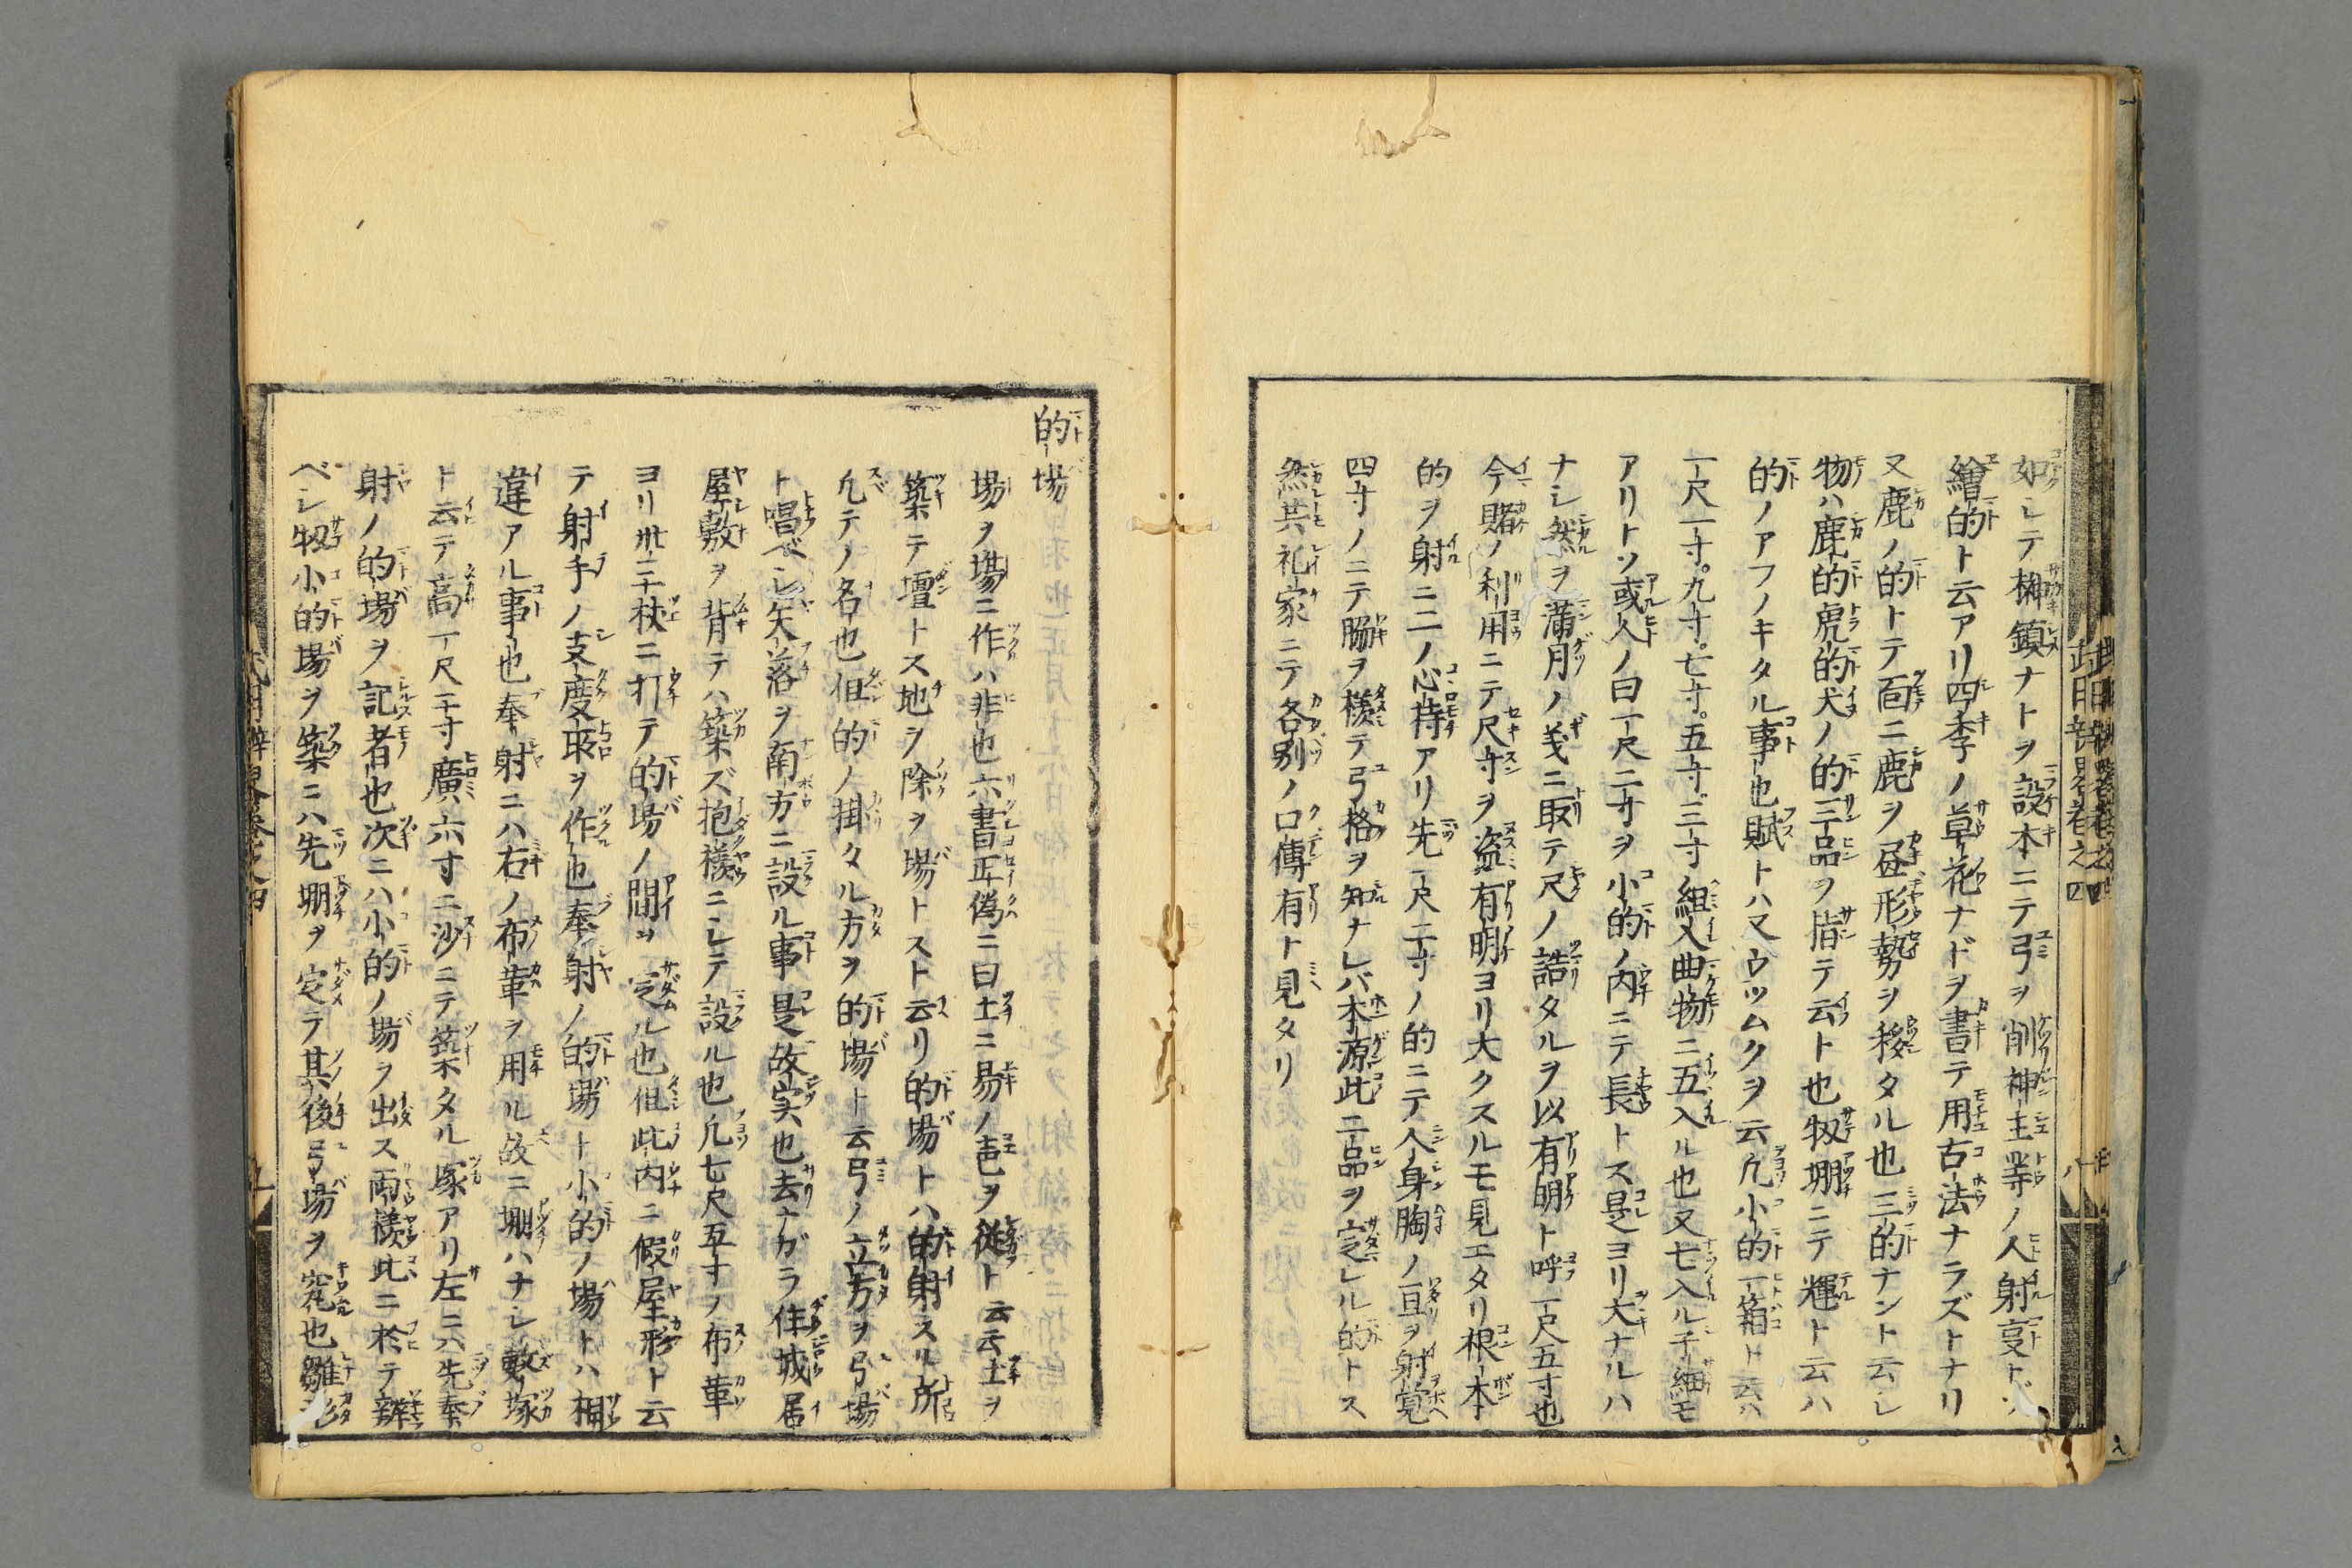 如シテ榊鎮ナトヲ設木ニテ弓ヲ削神主等ノ人射亨トゾ
繪的ト云アリ四季ノ草花ナドヲ書テ用古法ナラズトナリ
又鹿ノ的トテ面ニ鹿ヲ昼形勢ヲ移タル也三的ナント云レ
物ハ鹿的虎的犬ノ的三品ヲ指テ云ト也扨堋ニテ輝ト云ハ
的ノアフノキタル事也賦トハ又ウツムクヲ云凢小的一箱ト云ハ
一尺一寸。九寸。七寸。五寸。三寸組入曲物ニ五入ル也又七入ル子細モ
アリトソ或人ノ曰一尺二寸ヲ小的ノ内ニテ長トス是ヨリ大ナルハ
ナシ然ヲ滿月ノ義ニ取テ尺ノ詰タルヲ以有明ト呼一尺五寸也
今賭ノ利用ニテ尺寸ヲ盗有明ヨリ大クスルモ見エタリ根本
的ヲ射ニ二ノ心持アリ先一尺二寸ノ的ニテ人身胸ノ亘ヲ射覚
四寸ノニテ脇ヲ様テ弓格ヲ知ナレバ本源此二品ヲ定レル的トス
然共礼家ニテ各別ノ口傳有ト見タリ
武用辨畧巻之四
八
的場
場ヲ塲ニ作ハ非也六書正譌ニ曰土ニ昜ノ声ヲ従ト云云土ヲ
築テ壇トス地ヲ除ヲ場トスト云リ的場トハ的射スル所
凢テノ名也但的ノ掛タル方ヲ的場ト云弓ノ立方ヲ弓場
ト唱ベシ矢落ヲ南方ニ設ル事是故実也去ナガラ住城居
屋敷ヲ背テハ築ズ抱様ニシテ設ル也凢七尺五寸ノ布革
ヨリ卅三杖ニ打テ的場ノ間ヲ定ル也但此内ニ假屋形ト云
テ射手ノ支度所ヲ作也奉射ノ的場ト小的ノ場トハ相
違アル事也奉射ニハ右ノ布革ヲ用ル故ニ堋ハナシ敷塚
ト云テ高一尺二寸廣六寸ニ沙ニテ築タル塚アリ左ニハ先奉
射ノ的場ヲ記者也次ニハ小的ノ場ヲ出ス両様此ニ於テ辨
ベシ扨小的場ヲ築ニハ先堋ヲ定テ其後弓場ヲ究也雛形
武用辨畧巻之四
九